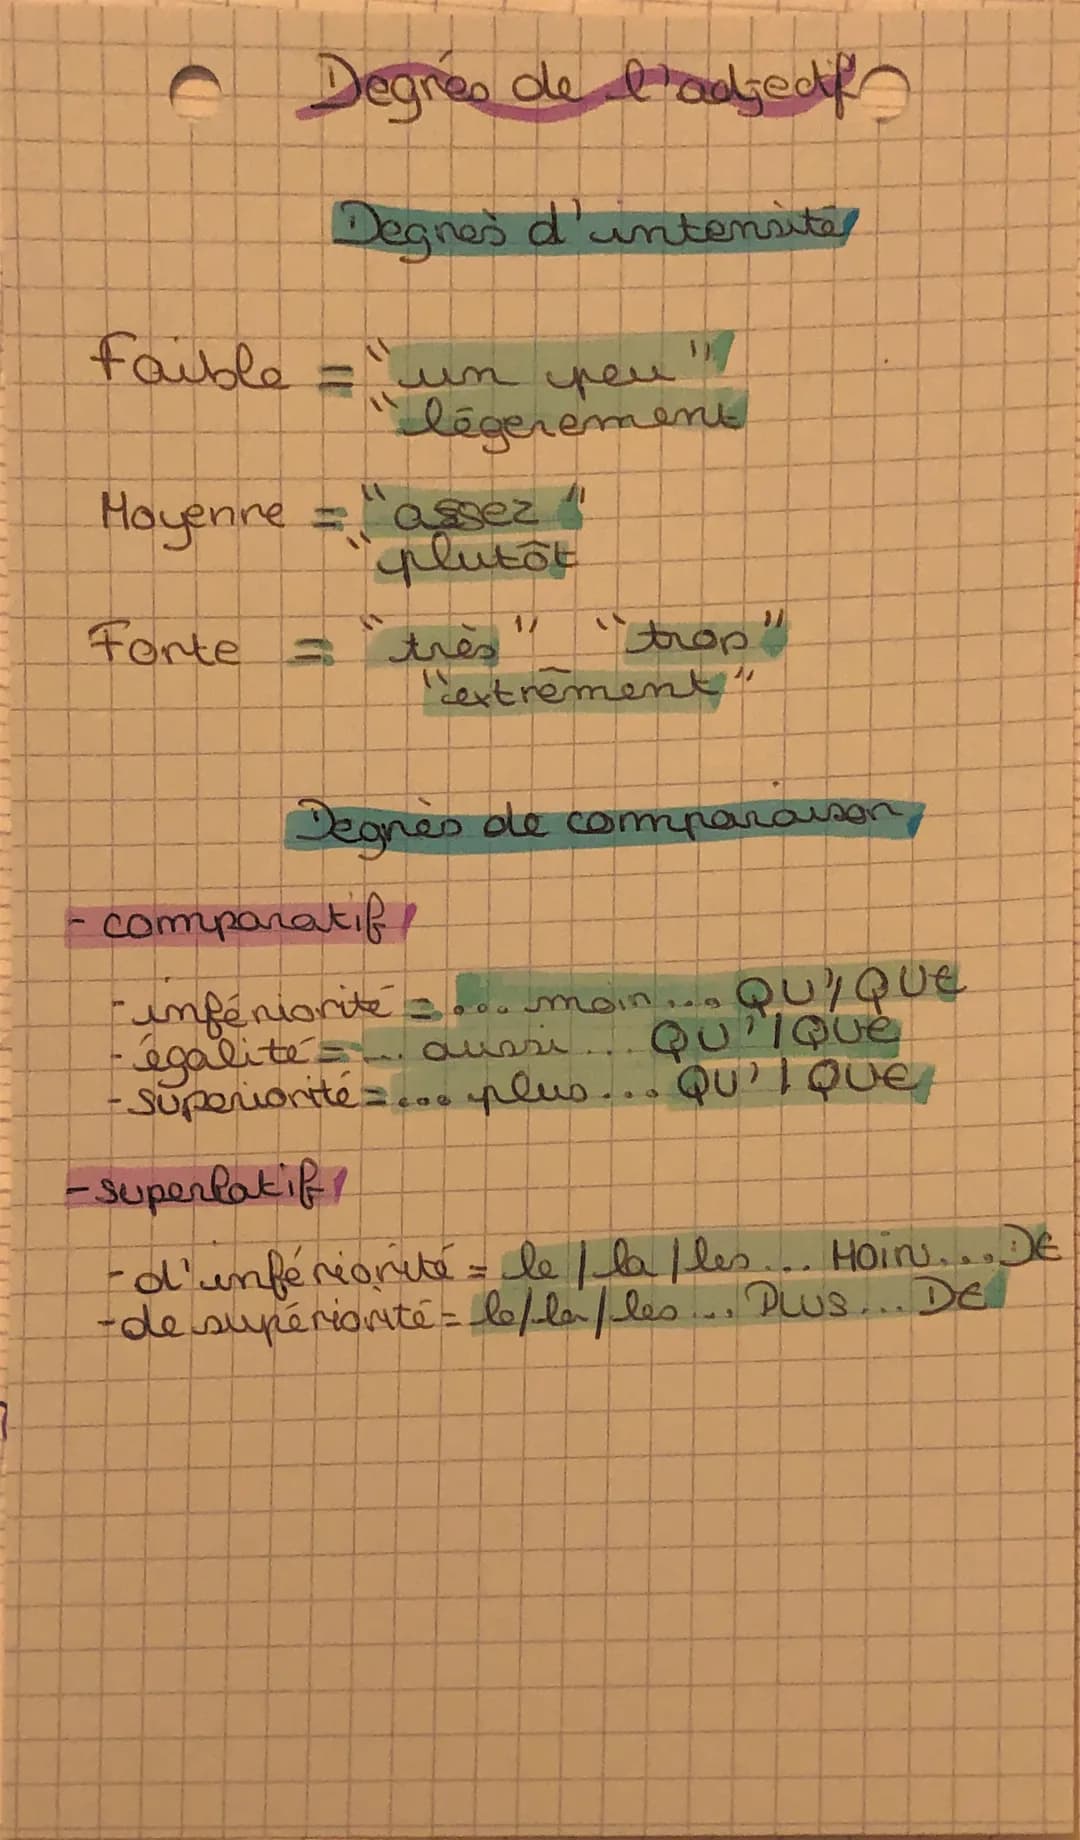 Degrés de l'adjectif
Degrès d'intensité
Faible = "un peu"
"légerement
Moyenne = "assez"
"plutôt
Forte = "très" "trop"
"extrêment"
Degrès de comparaison
- comparatif
- infériorité = ... moin ... QU'/QUE
- égalité = ... aussi ... QU'/QUE
- supériorité = ... plus ... QU'/QUE
- superlatif
- d'infériorité = le/la/les ... MOINS ... DE
- de supériorité = le/la/les ... PLUS ... DE